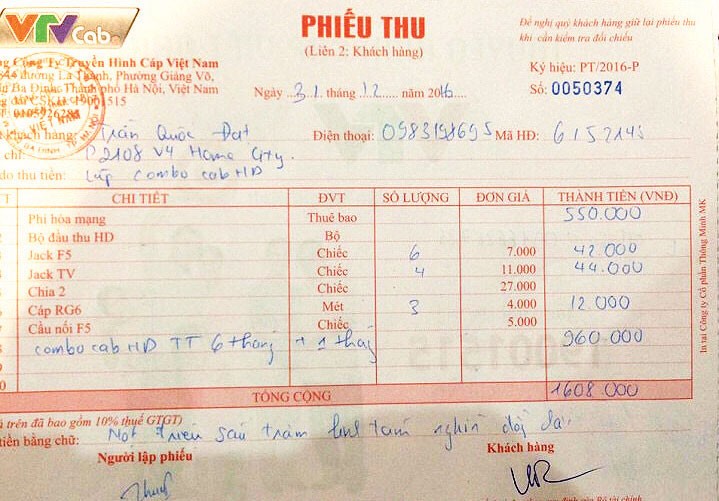 VTVCab
PHIẾU THU
(Liên 2: Khách hàng)
Đề nghị quý khách hàng giữ lại phiếu thu
khi cần kiểm tra đối chiếu
Ký hiệu: PT/2016-P
Số: 0050374
ng Công Ty Truyền Hình Cáp Việt Nam
đường La Thành, Phường Giảng Võ,
n Ba Đình, Thành phố Hà Nội, Việt Nam
Ngày 31 tháng 12 năm 2016
khách hàng: Trần Quốc Đạt
Điện thoại: 0983198695 Mã HĐ: 6152145
chỉ: P2108 V4 Home City.
do thu tiền: Lắp combo cab HD
TT CHI TIẾT ĐVT SỐ LƯỢNG ĐƠN GIÁ THÀNH TIỀN (VNĐ)
Phí hòa mạng Thuê bao 550.000
Bộ đầu thu HD Bộ
Jack F5 Chiếc 6 7.000 42.000
Jack TV Chiếc 4 11.000 44.000
Chia 2 Chiếc 27.000
Cáp RG6 Mét 3 4.000 12.000
Cầu nối F5 Chiếc 5.000
combo cab HD TT 6 tháng + 1 thág 960.000
TỔNG CỘNG 1608 000
á trên đã bao gồm 10% thuế GTGT)
tiền bằng chữ: Một triệu sáu trăm linh tám nghìn đồg
Người lập phiếu
Khách hàng
In tại Công ty Cổ phần Thông Minh MK